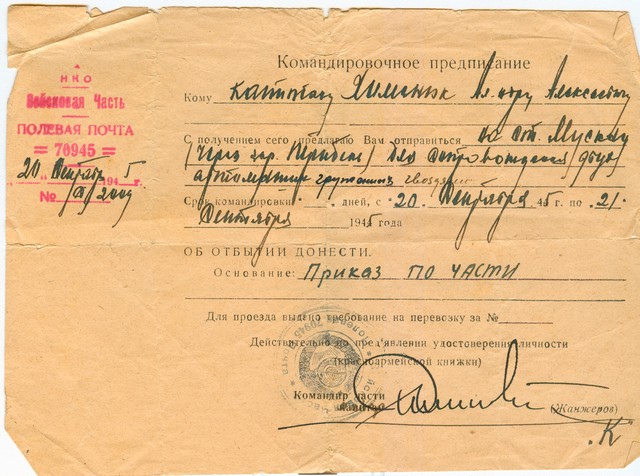 НКО
Войсковая Часть
ПОЛЕВАЯ ПОЧТА
= 70945 =
20 Сентябрь 1945 г.
№
Командировочное предписание
Кому капитану Хименик Алексеевичу
С получением сего предлагаю Вам отправиться на ст. Мускау
/через гор. / для сопровождения
автомашин груженных гвоздями
Срок командировки дней, с "20" Сентября 45 г. по "21"
Сентября 1945 года
ОБ ОТБЫТИИ ДОНЕСТИ.
Основание: Приказ по части
Для проезда выдано требование на перевозку за №
Действительно по пред'явлении удостоверения личности
(красноармейской книжки)
Командир части
(Жанжеров)
"К"